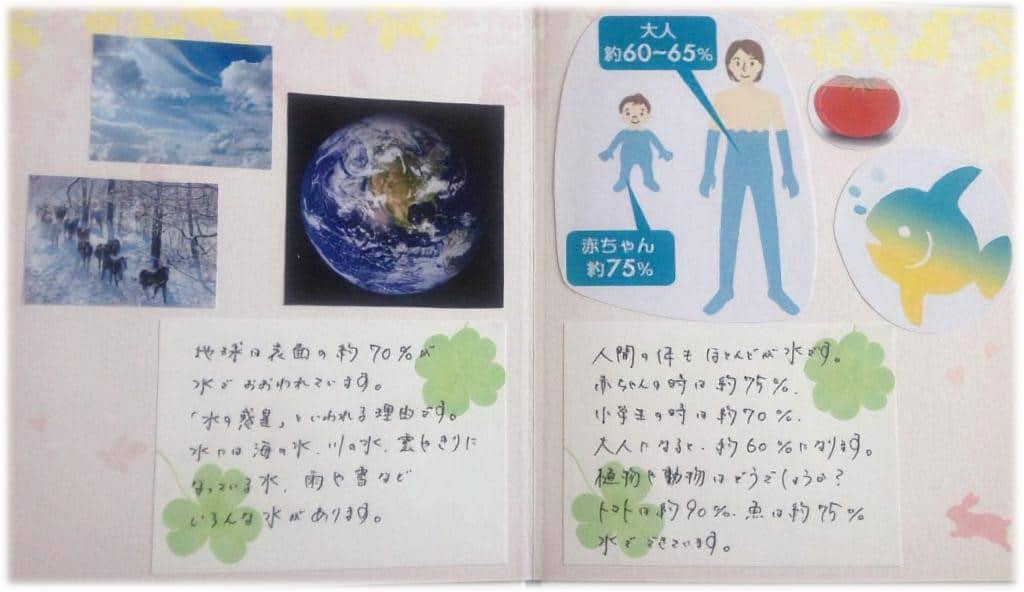 地球は表面の約70%が
水でおおわれています。
「水の惑星」といわれる理由です。
水には海の水、川の水、雲やきりに
なっている水、雨や雪など
いろんな水があります。
大人
約60~65%
赤ちゃん
約75%
人間の体もほとんどが水です。
赤ちゃんの時は約75%、
小学生の時は約70%、
大人になると、約60%になります。
植物や動物はどうでしょうか?
トマトは約90%、魚は約75%
水でできています。